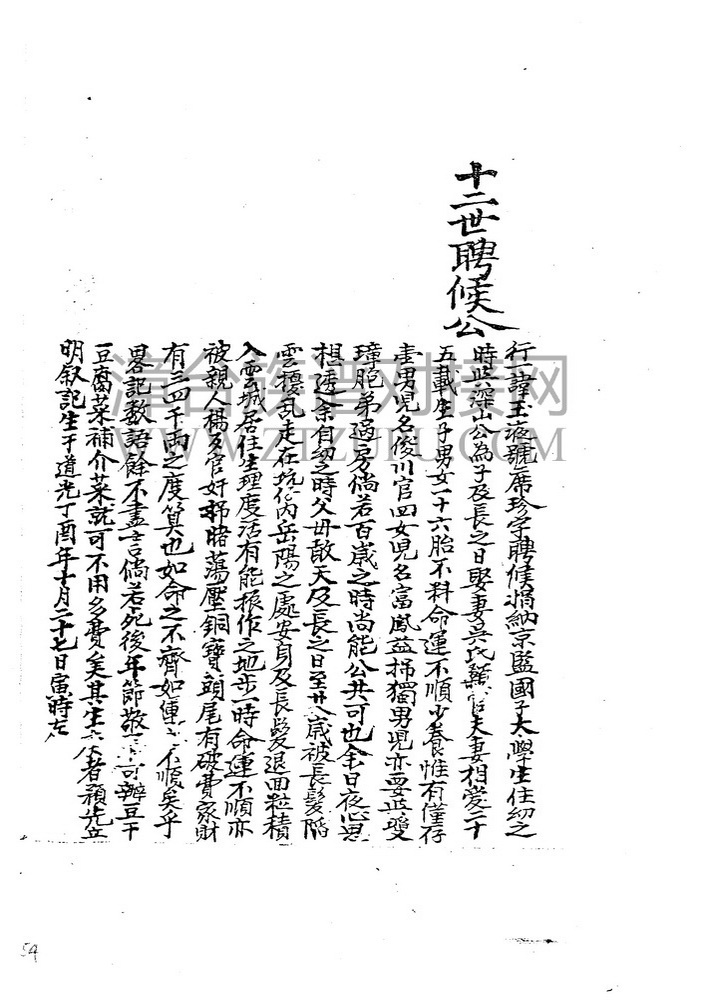 十二世聘候公
行一諱玉液號席珍字聘候捐納京監國子太學生住幼之
時與深山公為子及長之日娶妻吳氏 夫妻相愛二十
五載生子男女一十六胎不料命運不順少養惟有僅存
壹男兒名俊川官四女兒名富鳳益掃獨男兒亦要與雙
璋胞弟過房倘若百歲之時尚能公共可也余日夜心思
想透余自幼之時父母敵天及長之日至廿八歲被長髮陷
雲擾亂走在坑 內岳陽之處安身及長髮退回粒積
入雲城居住生理度活有能振作之地步一時命運不順亦
被親人楊 官奸掃賭蕩壓銅寶頭尾有破費家財
有三四千両之度算也如命之不齊如運 不順矣乎
畧記数語餘不盡言倘若死後年節敬 可辦豆干
豆腐菜補介菜就可不用多費矣其生 者預先立
明叙記生于道光丁酉年十月二十七日寅時
滸台族谱对接网
WWW.ZTZUPU.COM
54